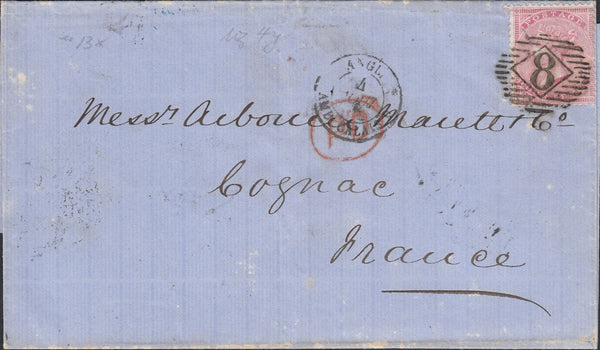 13x
POSTAGE
8
ANGL.
Messrs Arbouin Marett & Co.
Cognac
France